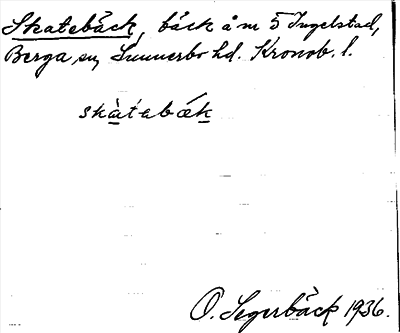 Skatebäck, bäck å m 5 Ingelstad,
Berga sn, Sunnerbo hd. Kronob. l.
skàtebæ̀k
O. Segerbäck 1936.